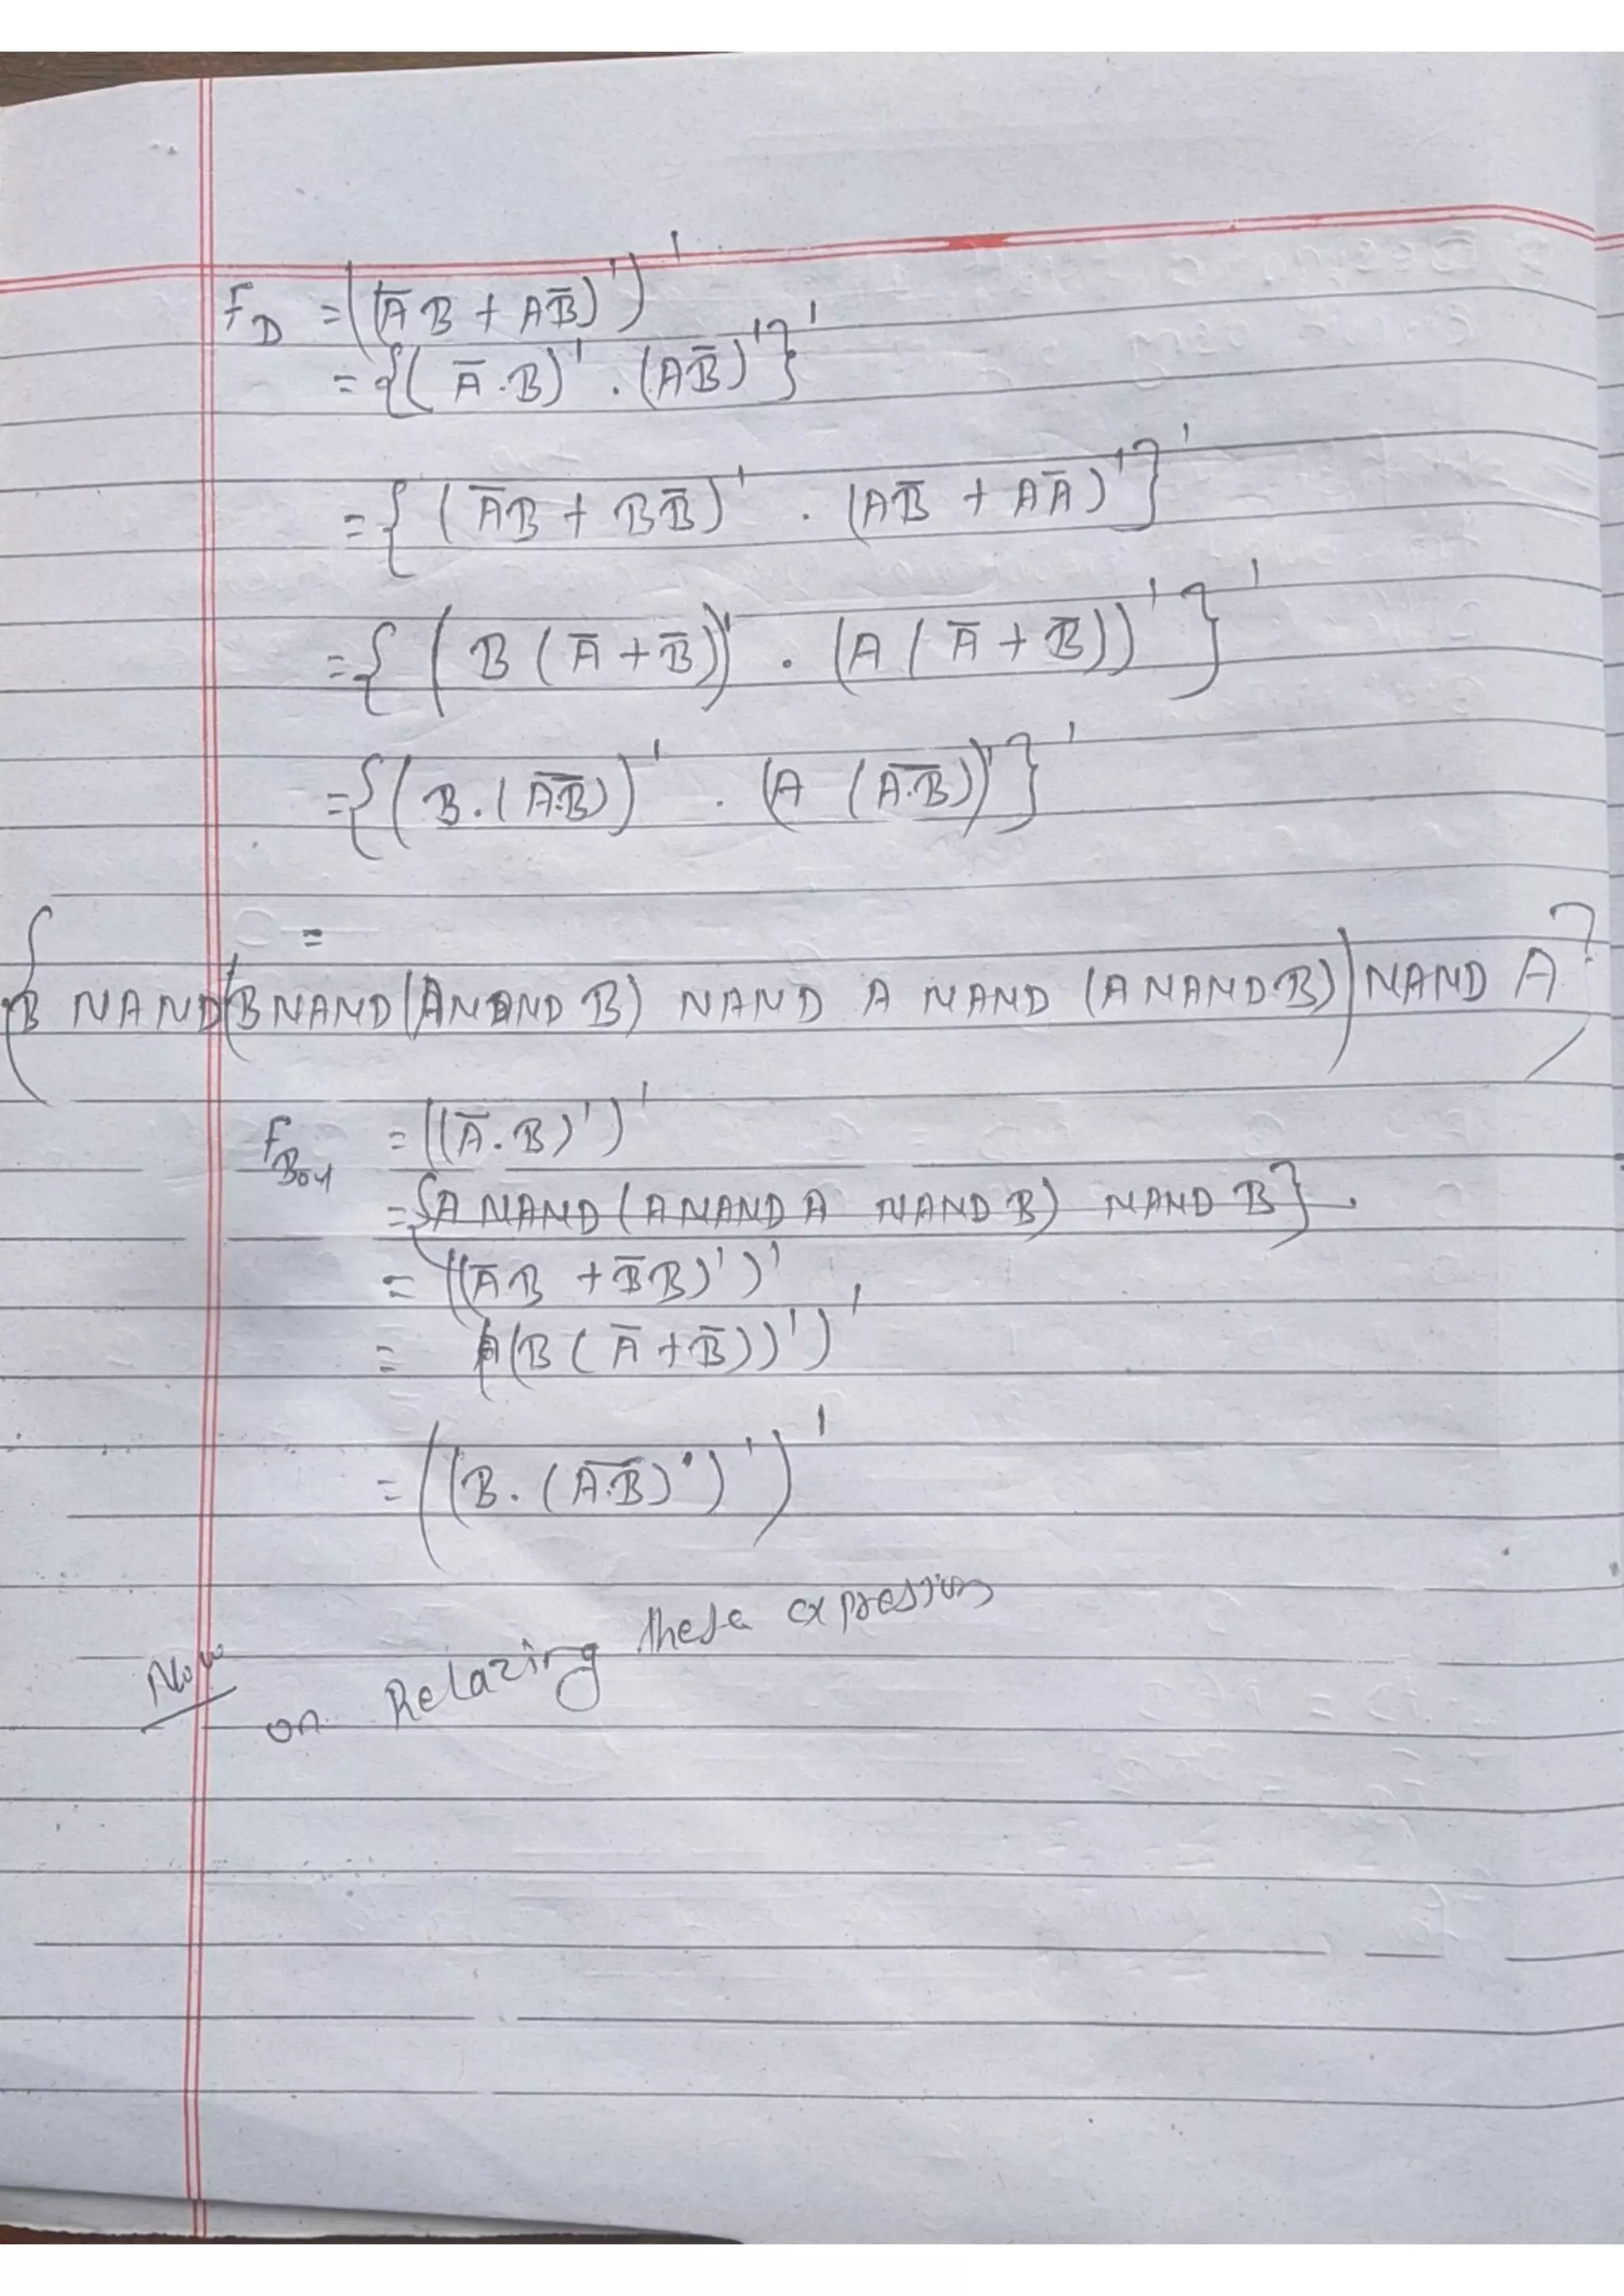 F_D = ((A̅B + AB̅)')'
= {(A̅.B)' . (AB̅)'}'
= {(A̅B + BB̅)' . (AB̅ + AA̅)'}'
= {(B(A̅ + B̅))' . (A(A̅ + B̅))'}'
= {(B.(A̅.̅B̅))' . (A (A̅.̅B̅))'}'
=
{B NAND (B NAND (A NAND B) NAND A NAND (A NAND B)) NAND A}
F_Bout = ((A̅.B)')'
= {A NAND (A NAND A NAND B) NAND B}.
= ((A̅B + B̅B)')'
= ((B(A̅ + B̅))')'
= ((B.(A̅.̅B̅)')')'
Now
on Relazing these expressions